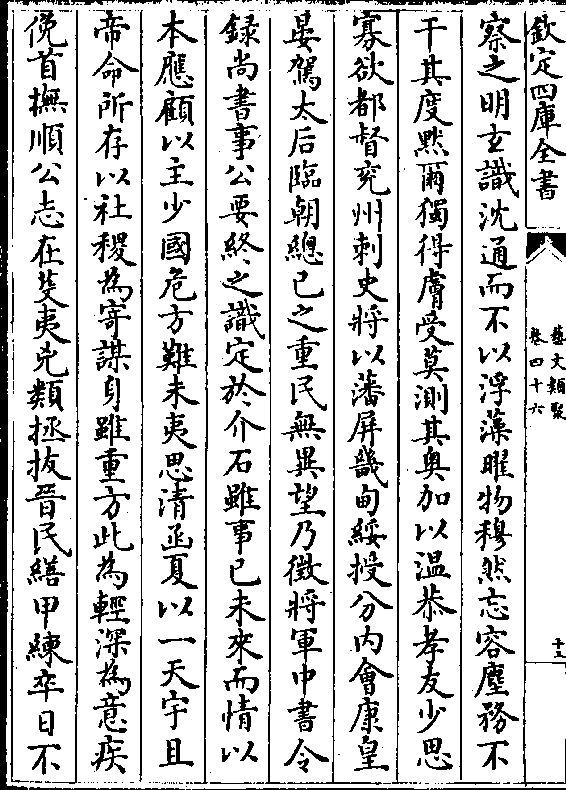 欽定四庫全書
藝文類聚
卷四十六
十五
察之明玄識沈通而不以浮藻曜物穆然忘容塵務不
干其度黙爾獨得膚受莫測其奥加以温恭孝友少思
寡欲都督兖州刺史將以藩屏畿甸綏授分内會康皇
晏駕太后臨朝總己之重民無異望乃徴將軍中書令
録尚書事公要終之識定於介石雖事已未來而情以
本應顧以主少國危方難未夷思清函夏以一天宇且
帝命所存以社稷為寄謀身雖重方此為輕深為意疾
俛首撫順公志在芟夷兇類拯拔晉民繕甲練卒日不